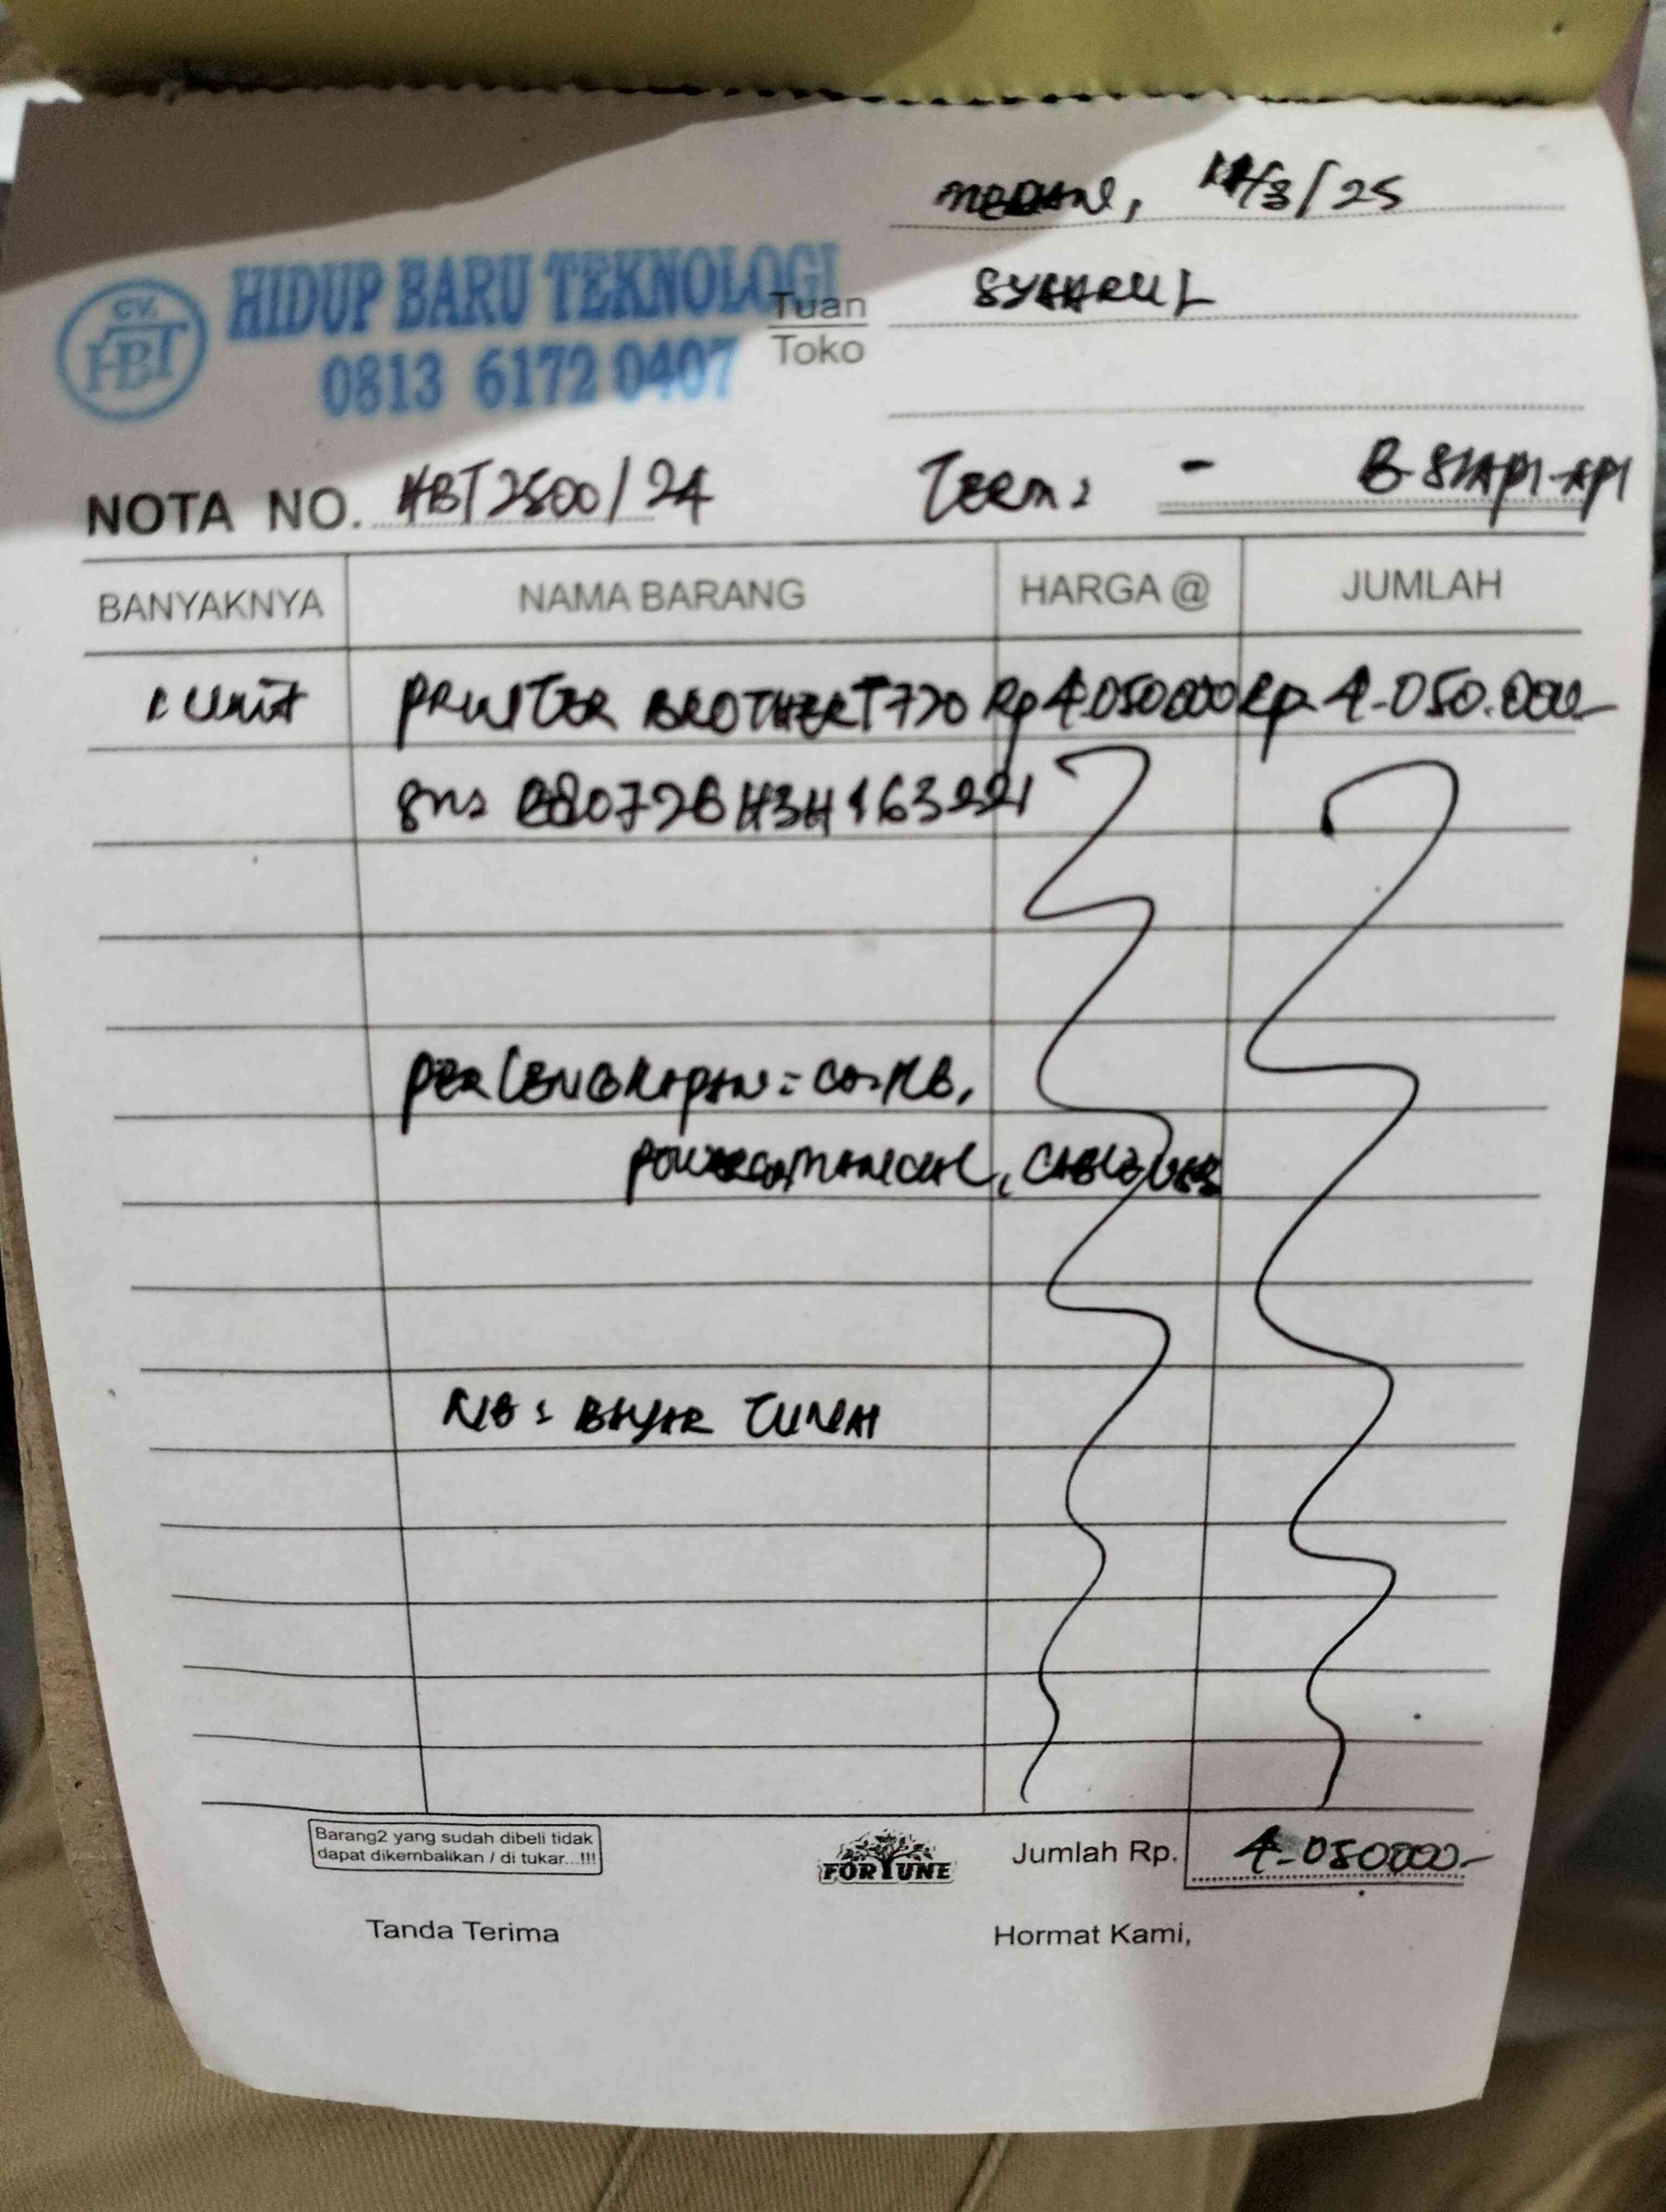 MEDAN, /3/25
CV. HBT
HIDUP BARU TEKNOLOGI
0813 6172 0407
Tuan
Toko
SYAHRUL
NOTA NO. HBT2500/24 Term : - B. SIAPI-API
BANYAKNYA NAMA BARANG HARGA @ JUMLAH
1 Unit PRINTER BROTHER T720 Rp 4.050000 Rp. 4.050.000-
sn: H3H163221
PERLENGKAPAN :
POWER, MANUAL, CABLE USB
NB : BAYAR TUNAI
Barang2 yang sudah dibeli tidak
dapat dikembalikan / di tukar...!!!
FORTUNE
Jumlah Rp. 4.050000-
Tanda Terima Hormat Kami,